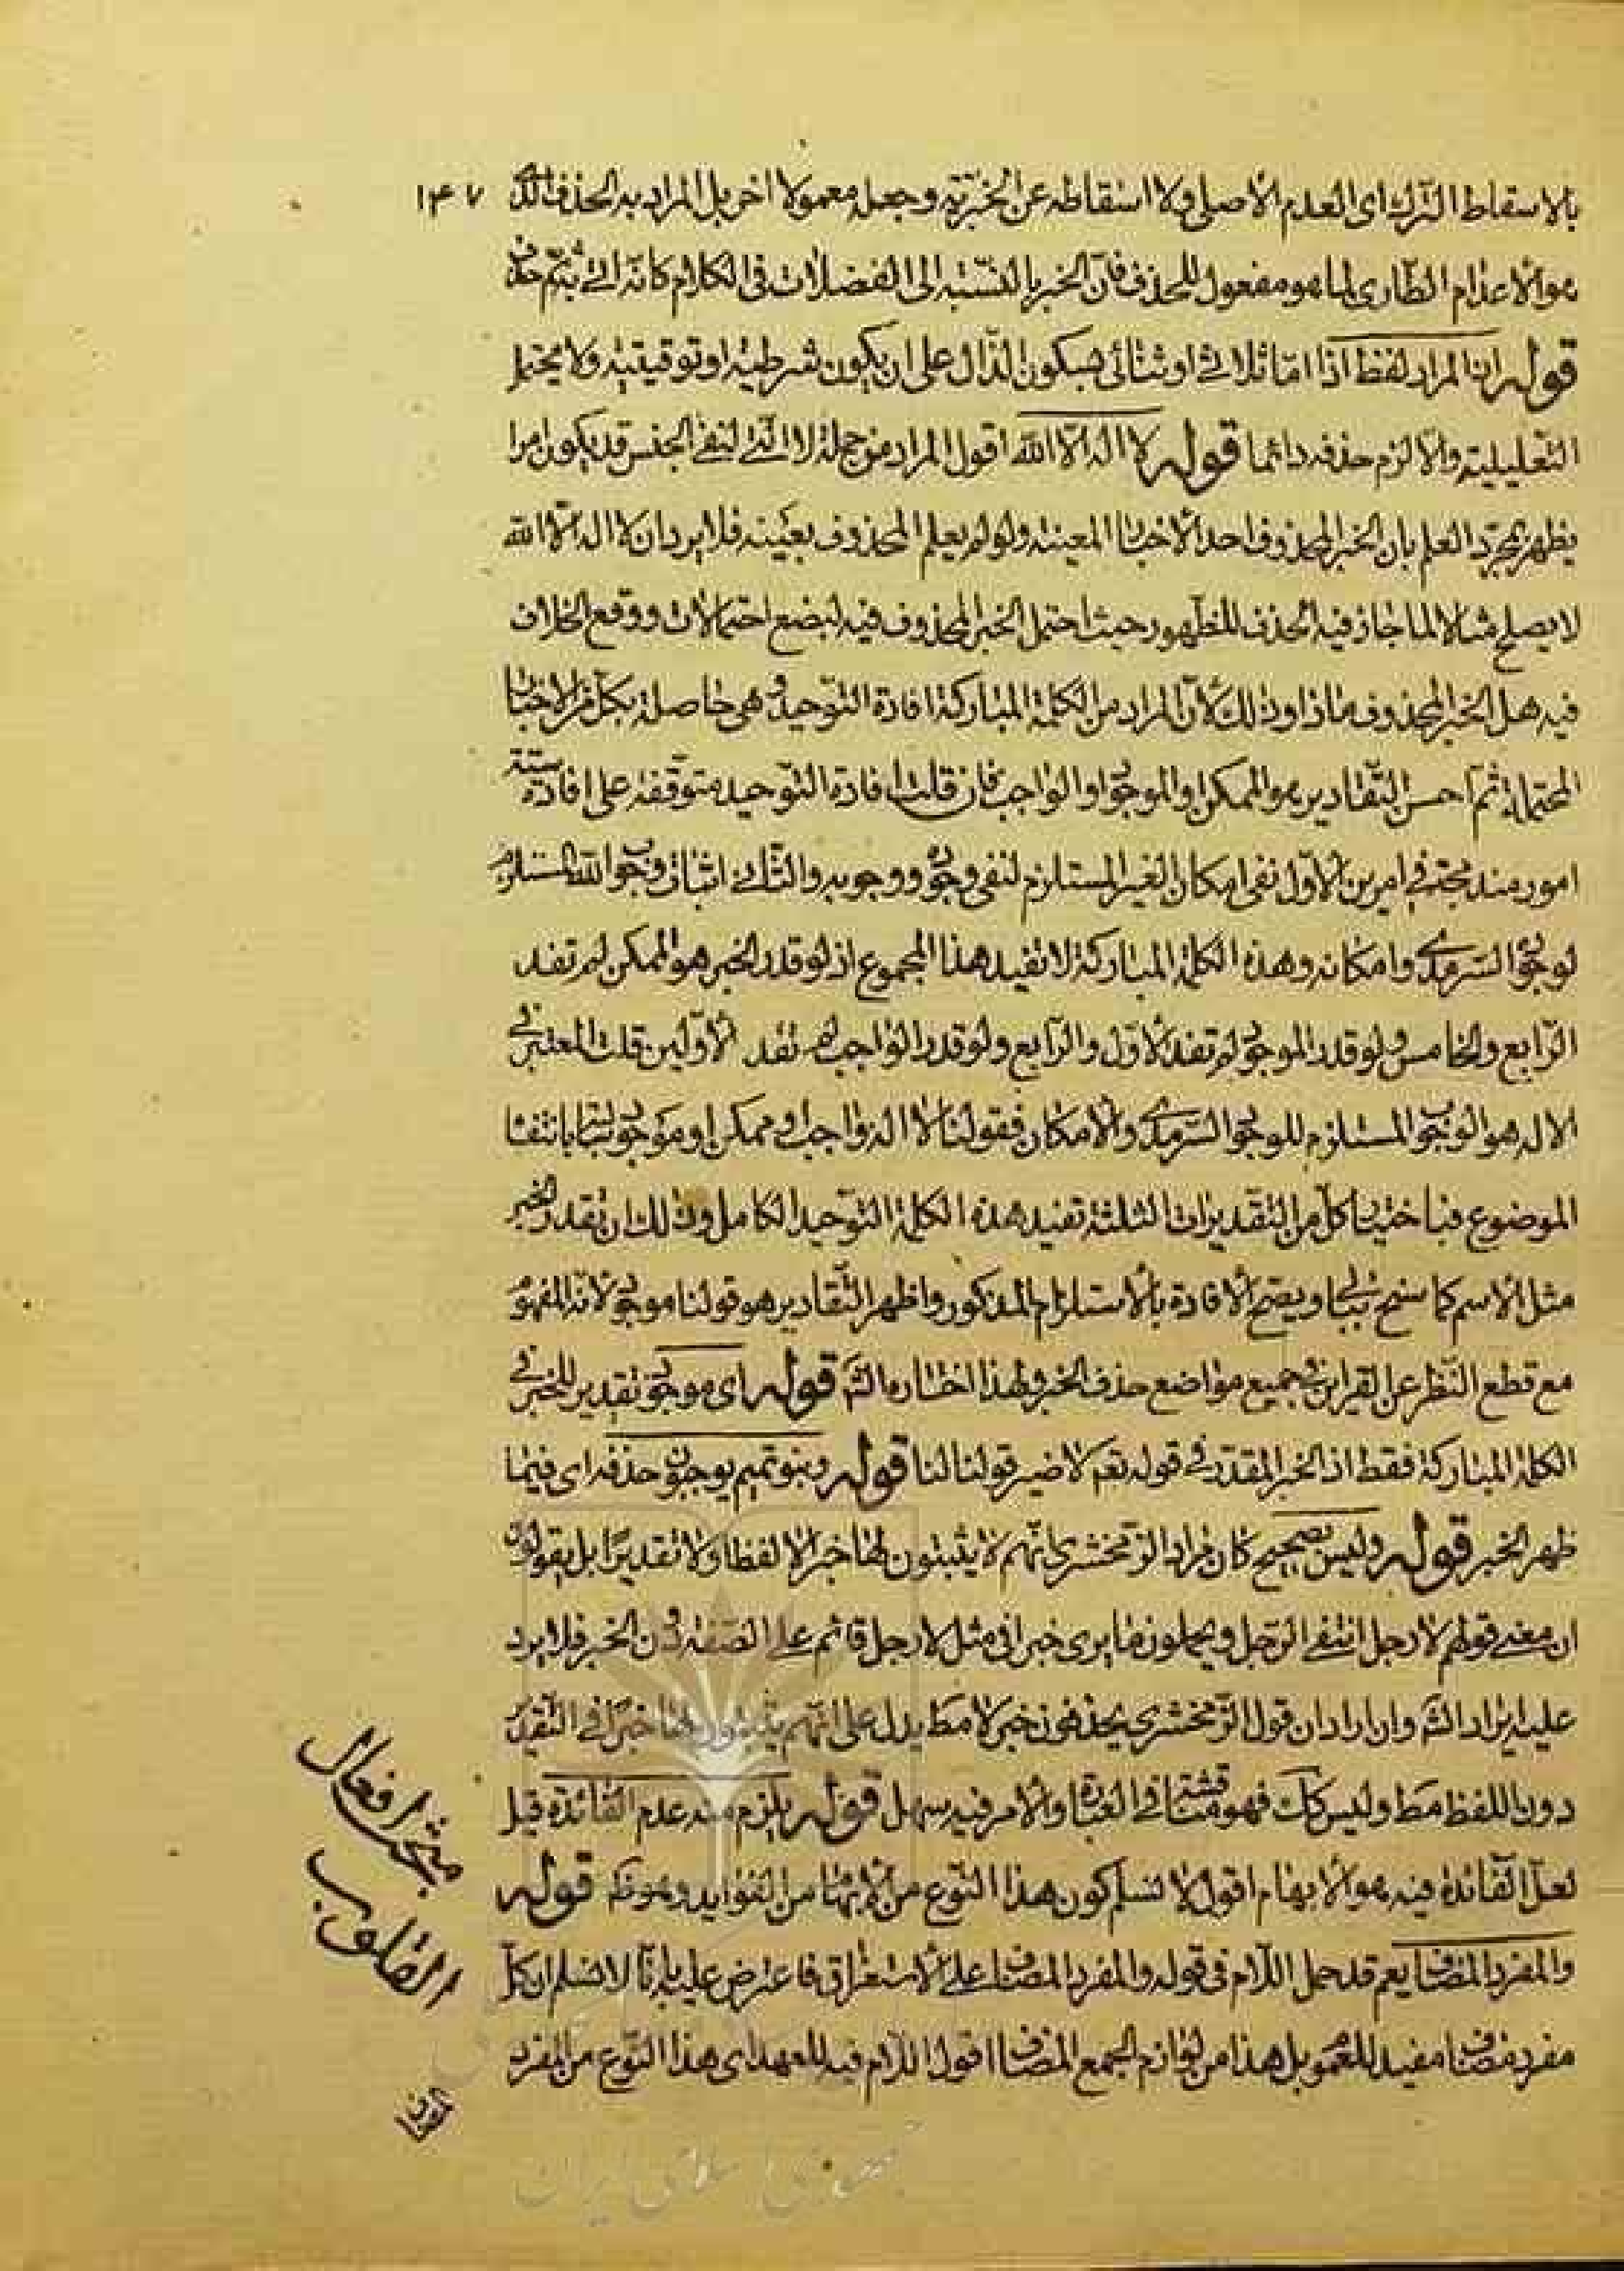 بالاسقاط الترك اى العدم الأصلى ولا اسقاطه عن الخبرية وجعله معمولا اخر بل المراد به الحذف الذى ١٤٧
هو الاعدام الطارى لما هو مفعول للحذف فان الخبر بالنسبة الى الفضلات فى الكلام كانه
قوله ان المراد لفظ اذا اما ثلاثى او ثنائى بسكون الذال على ان يكون شرطية او توقيتية ولا يحتمل
التعليلية والا لزم حذفه دائما قوله لا اله الا الله اقول المراد من جملة لا التى لنفى الجنس قد يكون امرا
يظهر بمجرد العلم بان الخبر المحذوف احد الاخبار المعينة ولو لم يعلم المحذوف بعينه فلا يرد ان لا اله الا الله
لا يصلح مثالا لما جاز فيه الحذف للظهور حيث احتمل الخبر المحذوف فيه لبضع احتمالات ووقع الخلاف
فيه هل الخبر المحذوف ماذا وذلك لأن المراد من الكلمة المباركة افادة التوحيد وهى حاصلة بكل من الاخبار
المحتملة ثم احسن التقادير هو الممكن او الموجود او الواجب فان قلت افادة التوحيد متوقفة على افادة ستة
امور مندمجة فى امرين الاول نفى امكان الغير المستلزم لنفى وجوده ووجوبه والثانى اثبات وجوب الله المستلزم
لوجوده السرمدى وامكانه وهذه الكلمة المباركة لا تفيد هذا المجموع اذ لو قدر الخبر هو الممكن لم تفد
الرابع والخامس ولو قدر الموجود لم تفد الاول والرابع ولو قدر الواجب لم تفد الاولين قلت المعتبر فى
الاله هو الوجوب المستلزم للوجود السرمدى والامكان فقولنا لا اله واجب او ممكن او موجود بانتفاء
الموضوع فباختيار كل من التقديرات الثلثة تفيد هذه الكلمة التوحيد الكامل وذلك ان تقدر الخبر
مثل الاسم كما سنح ببالى ويصح الافادة بالاستلزام المذكور واظهر التقادير هو قولنا موجود لانه المفهوم
مع قطع النظر عن القراين فى جميع مواضع حذف الخبر ولهذا اختاره الشم قوله اى موجود تقدير للخبر فى
الكلمة المباركة فقط اذ الخبر المقدر فى قوله تعم لا ضير قولنا لنا قوله وبنو تميم يوجبون حذفه اى فيما
ظهر الخبر قوله وليس بصحيح كان مراد الزمخشرى انهم لا يثبتون لها خبرا لا لفظا ولا تقديرا بل يقولون
ان معنى قولهم لا رجل انتفى الرجل ويحملون ما يرى خبرا فى مثل لا رجل قائم على الصفة دون الخبر فلا يرد
عليه ايراد الشم وان اراد ان قول الزمخشرى يحذفون خبر لا مط يدل على انهم يثبتون لها خبرا فى التقدير
دون اللفظ مط وليس كك فهو مناقشة فى العبارة والامر فيه سهل قوله يلزم منه عدم الفائدة قيل
لعل الفائدة فيه هو الابهام اقول لا نسلم كون هذا النوع من الابهام من الفوايد وهو ظ قوله
والمفرد المضاف يعم قد حمل اللام فى قوله والمفرد المضاف على الاستغراق فاعترض عليه بانا لا نسلم ان كل
مفرد مضاف مفيد للعموم بل هذا من لوازم الجمع المضاف اقول اللام فيه للعهد اى هذا النوع من المفرد
مبحث افعال
القلوب